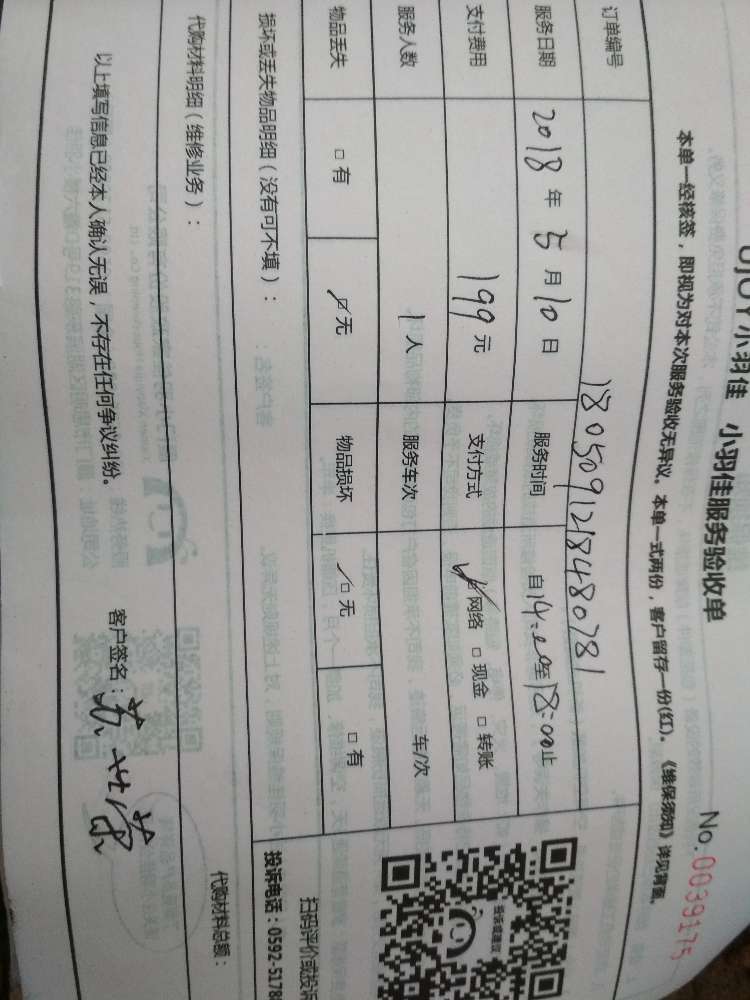 UJOY小羽佳 小羽佳服务验收单
No.0039175
本单一经核签，即视为对本次服务验收无异议。本单一式两份，客户留存一份(红)。《维保须知》详见背面。
订单编号 1805091218480781
服务日期 2018年5月10日 服务时间 自14:00至18:00止
支付费用 199元 支付方式 ☑网络 □现金 □转账
服务人数 1人 服务车次 车/次
物品丢失 □有 ☑无 物品损坏 ☑无 □有
损坏或丢失物品明细（没有可不填）：
扫码评价或投诉
投诉电话：0592-5178
投诉或建议
代购材料明细（维修业务）：
代购材料总额：
以上填写信息已经本人确认无误，不存在任何争议纠纷。
客户签名：苏